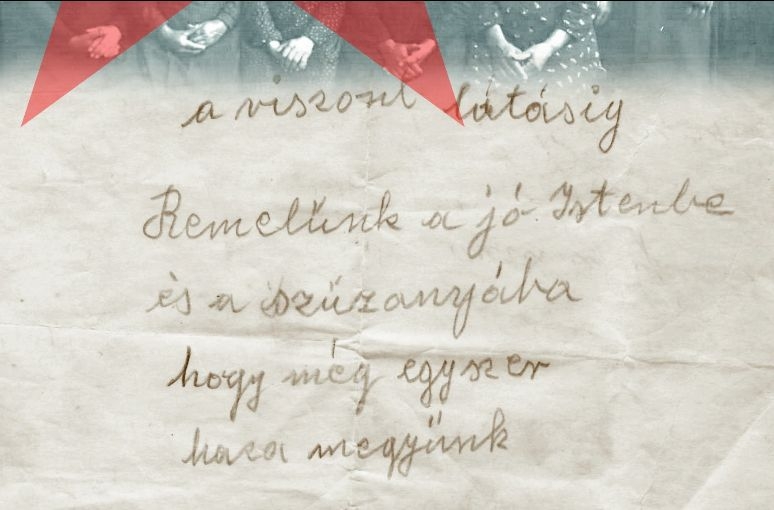 a viszont látásig
Remelünk a jó Istenbe
és a szűzanyába
hogy még egyszer
haza megyünk